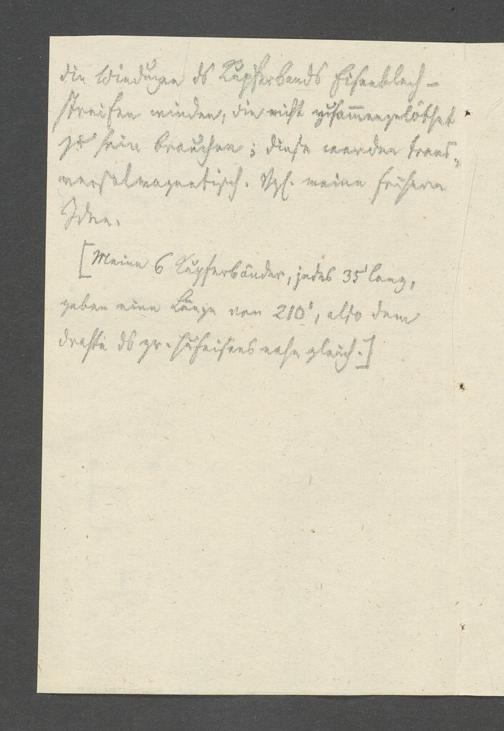 die Windungen ds Kupferbands Eisenblech-
streifen winden, die nicht zusammengelöthet
zu sein brauchen; diese werden trans-
versalmagnetisch. Vgl. meine frühern
Idee.
[Meine 6 Kupferbänder, jedes 35' lang,
geben eine Länge von 210', also dem
Drahte ds gr. Hufeisens nahe gleich.]